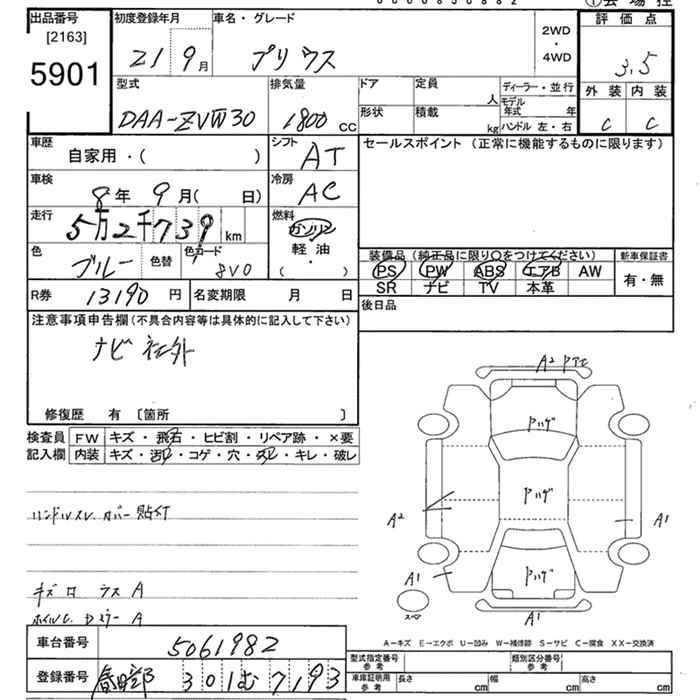 出品番号 初度登録年月 車名・グレード 2WD ・ 4WD 評価点
[2163]
5901 21 9月 プリウス 3.5
型式 排気量 ドア 定員 人 ディーラー・並行 外装 内装
DAA-ZVW30 1800 cc 形状 積載 kg モデル年式 年 ハンドル 左・右 C C
車歴 自家用・( ) シフト AT セールスポイント (正常に機能するものに限ります)
車検 8年 9月( 日) 冷房 AC
走行 5万2千739 km 燃料 ガソリン
軽・油
・( )
色 ブルー 色替 色コード 8V0
装備品 (純正品に限り○をつけてください) 新車保証書
PS PW ABS エアB AW 有・無
SR ナビ TV 本革
R券 13190 円 名変期限 月 日 後日品
注意事項申告欄(不具合内容等は具体的に記入して下さい)
ナビ 社外
修復歴 有 [箇所 ]
検査員 FW キズ・飛石・ヒビ割・リペア跡・×要
記入欄 内装 キズ・汚れ・コゲ・穴・スレ・キレ・破レ
A2
ハゲ
ハゲ
A2 A1
ハゲ
A1
スペア
A1
ハンドルスレ カバー貼付
キズ A
A
A-キズ E-エクボ U-凹み W-補修跡 S-サビ C-腐食 XX-交換済
車台番号 5061982
登録番号 春日部 301む7193
型式指定番号 参考 類別区分番号 参考
車庫証明用 参考 長さ cm 幅 cm 高さ cm